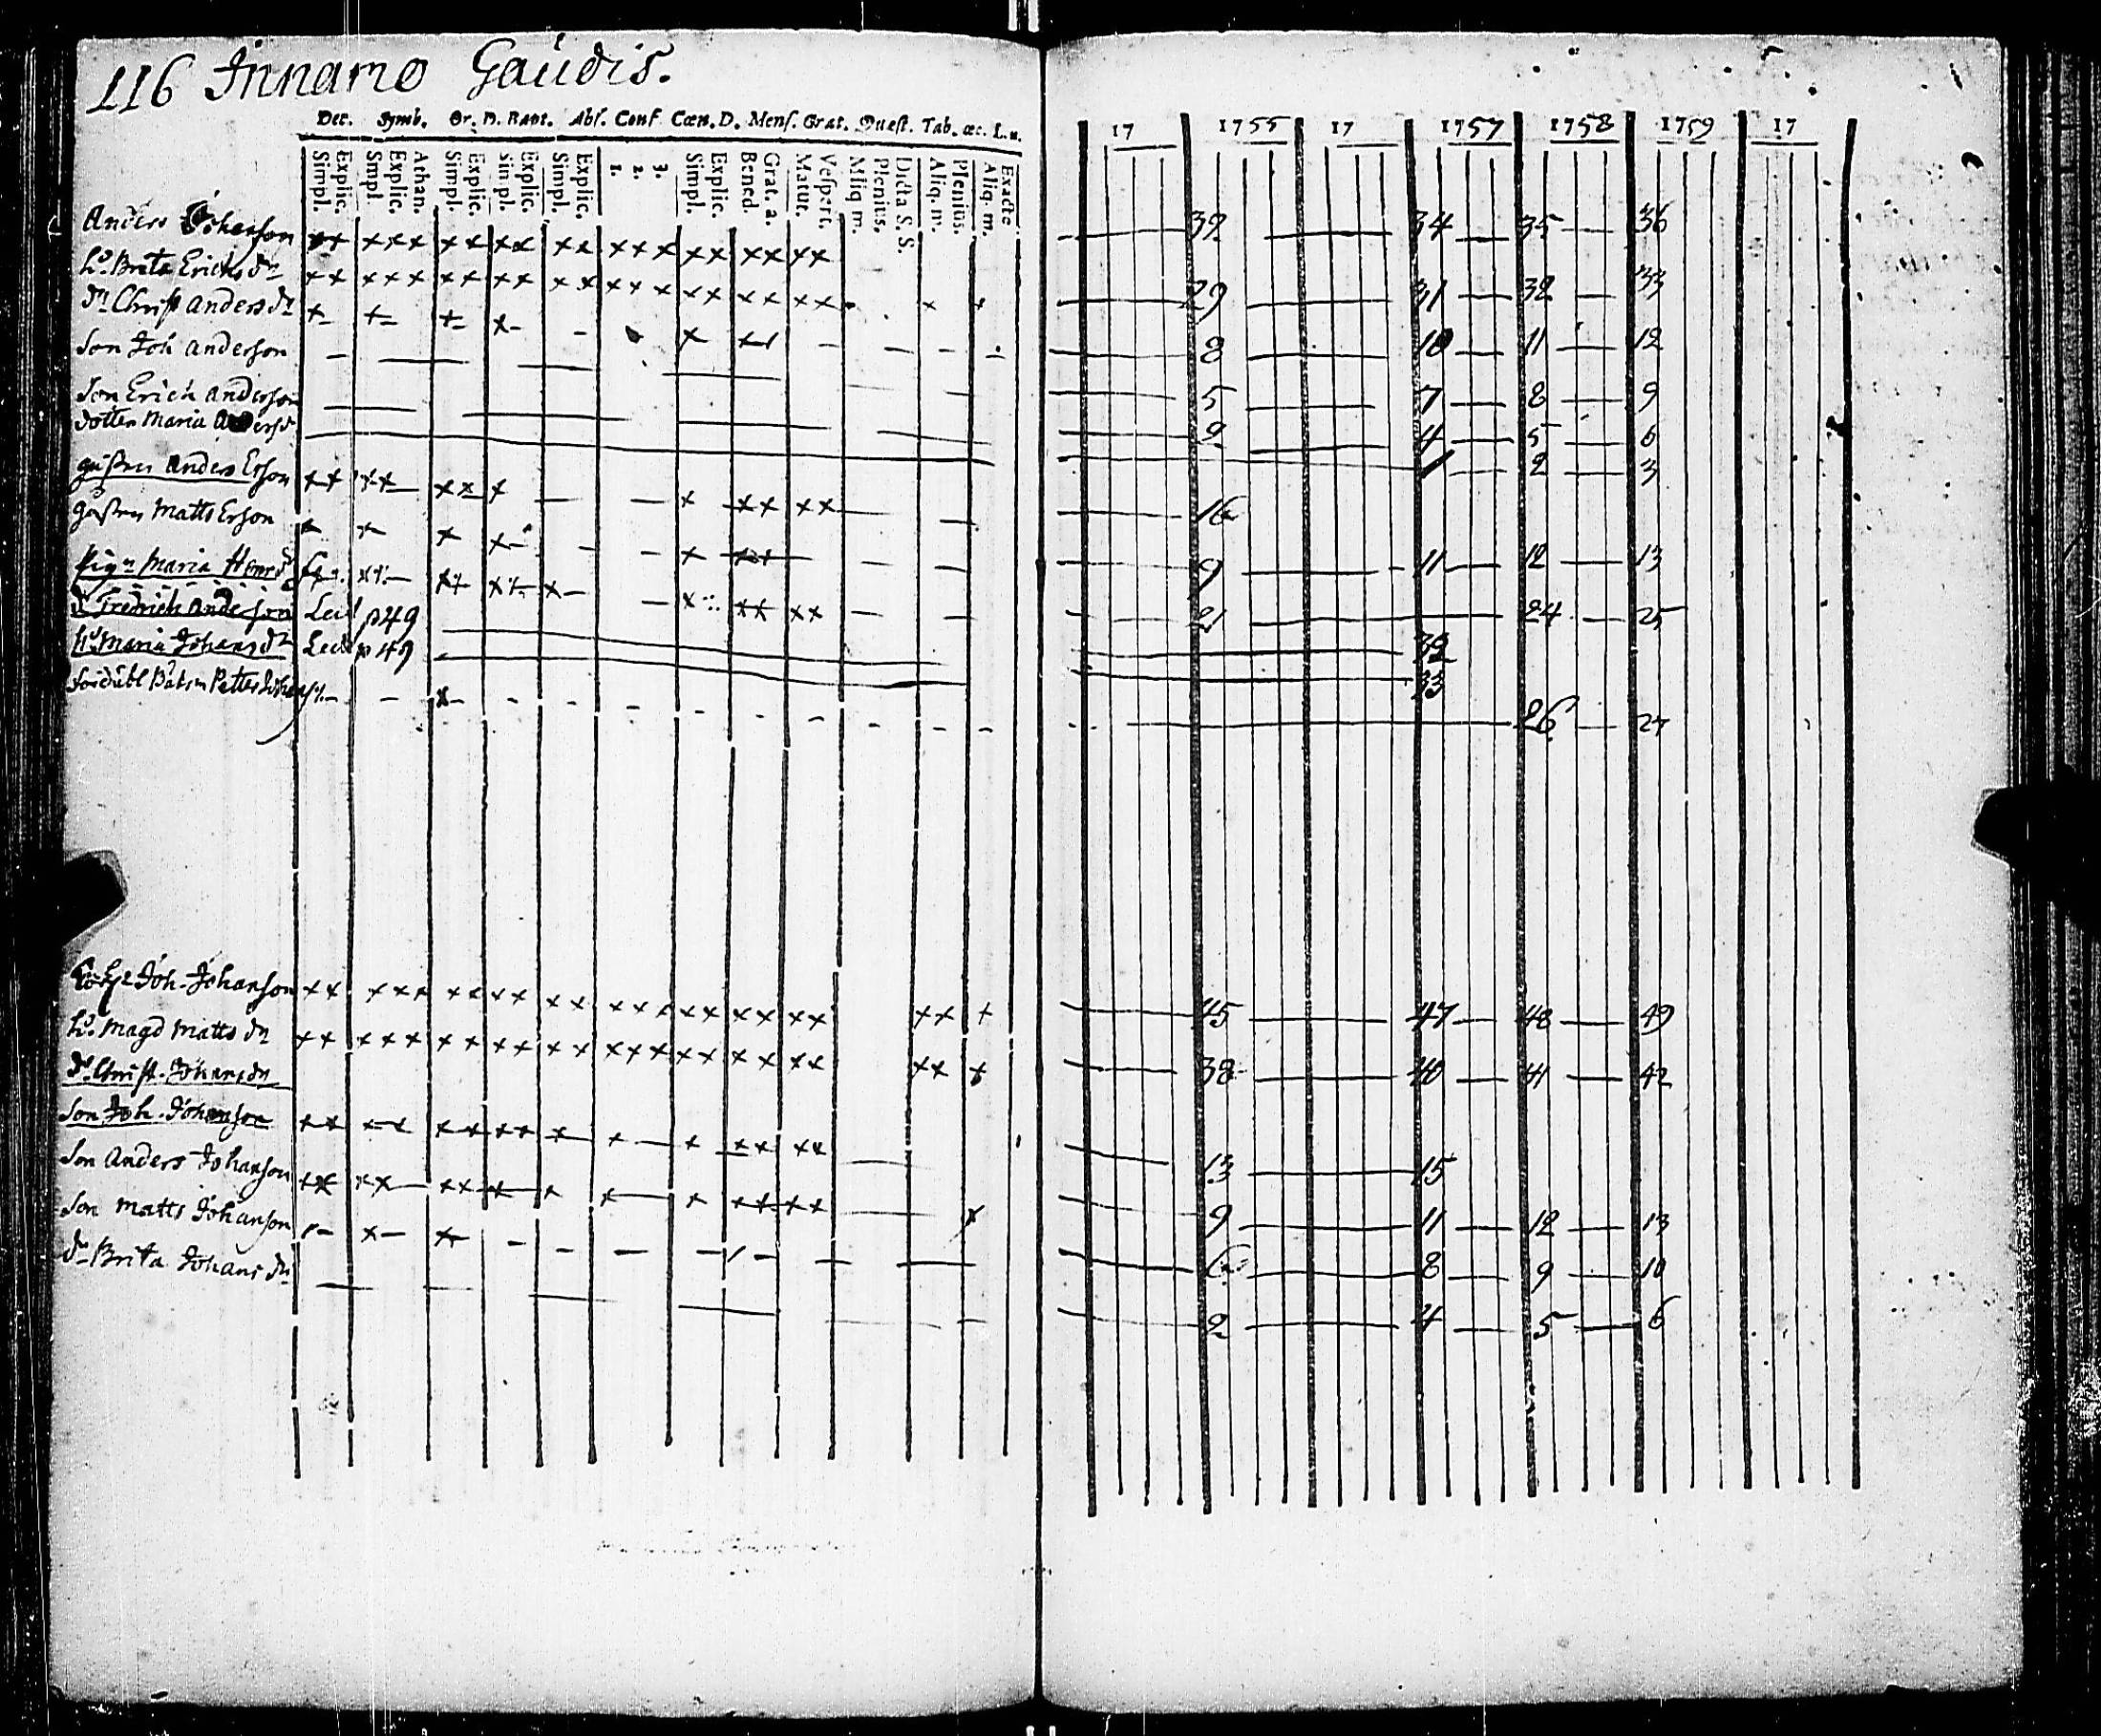 116 Innamo Gaudis.
Dec. Symb. Or. D. Bapt. Abs. Conf. Cœn. D. Mens. Grat. Quæst. Tab. œc. L. u.
Simpl. Explic. Simpl. Explic. Athan. Simpl. Explic. Simpl. Explic. Simpl. Explic. 1. 2. 3. Simpl. Explic. Bened. Grat. a. Matut. Vespert. Aliq m. Plenius. Dicta S. S. Aliq. m. Plenius. Aliq. m. Exacte
17 1755 17 1757 1758 1759 17
Anders Johanson ×× ××× ×× ×× ×× ××× ×× ×× ×× 32 34 35 36
h. Brita Erichs dr ×× ××× ×× ×× ×× ××× ×× ×× ×× × × 29 31 32 33
dr Christ anders dr × × × × × × 8 10 11 12
Son Joh anderson 5 7 8 9
Son Erich anderson 2 4 5 6
dotter Maria 1 2 3
Anders Erson ×× ×× ×× × × ×× ×× 16
Matts Erson × × × × × ×× 9 11 12 13
Maria 21 24 25
Fredrich anderson Leid p 49 32
h. Maria Johans dr Leid p 49 33
Petter 26 27
Joh. Johanson ×× ××× ×× ×× ×× ××× ×× ×× ×× ×× × 45 47 48 49
h. Magd Matts dr ×× ××× ×× ×× ×× ××× ×× ×× ×× ×× × 38 40 41 42
dr Christ. Johans dr
Son Joh. Johanson ×× ×× ×× ×× × × × ×× ×× 13 15
Son Anders Johanson ×× ×× ×× × × × × ×× ×× × 9 11 12 13
Son Matts Johanson × × 6 8 9 10
dr Brita Johans dr 2 4 5 6